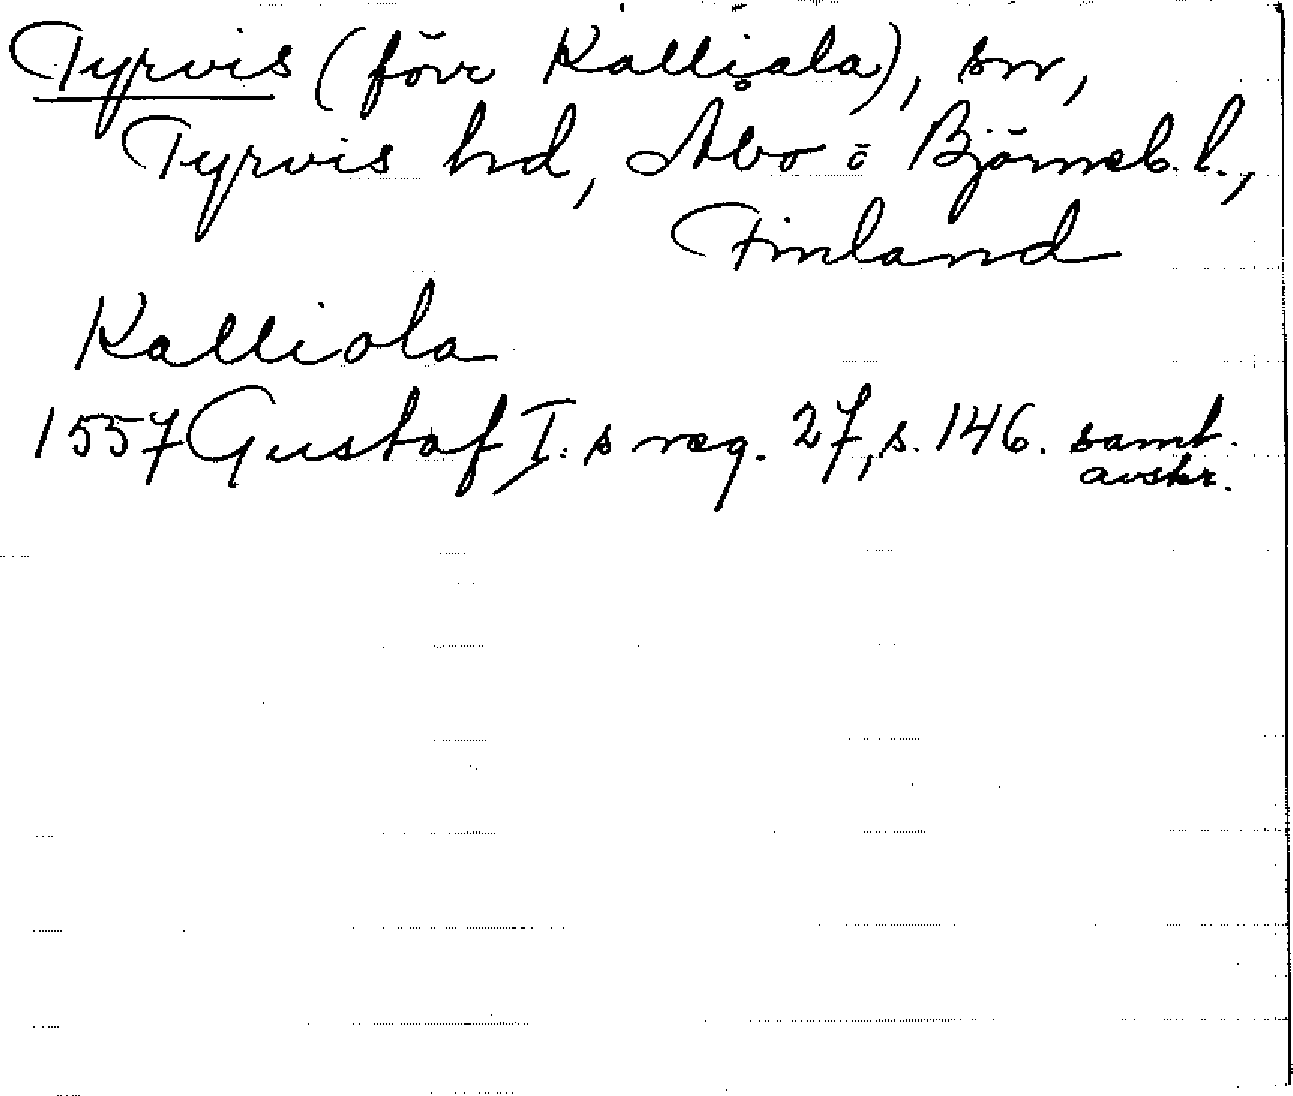 Tyrvis (förr Kalliala), sn,
Tyrvis hd, Åbo o Björneb. l.,
Finland
Kalliola
1557 Gustaf I:s reg. 27, s. 146. samt.
avskr.